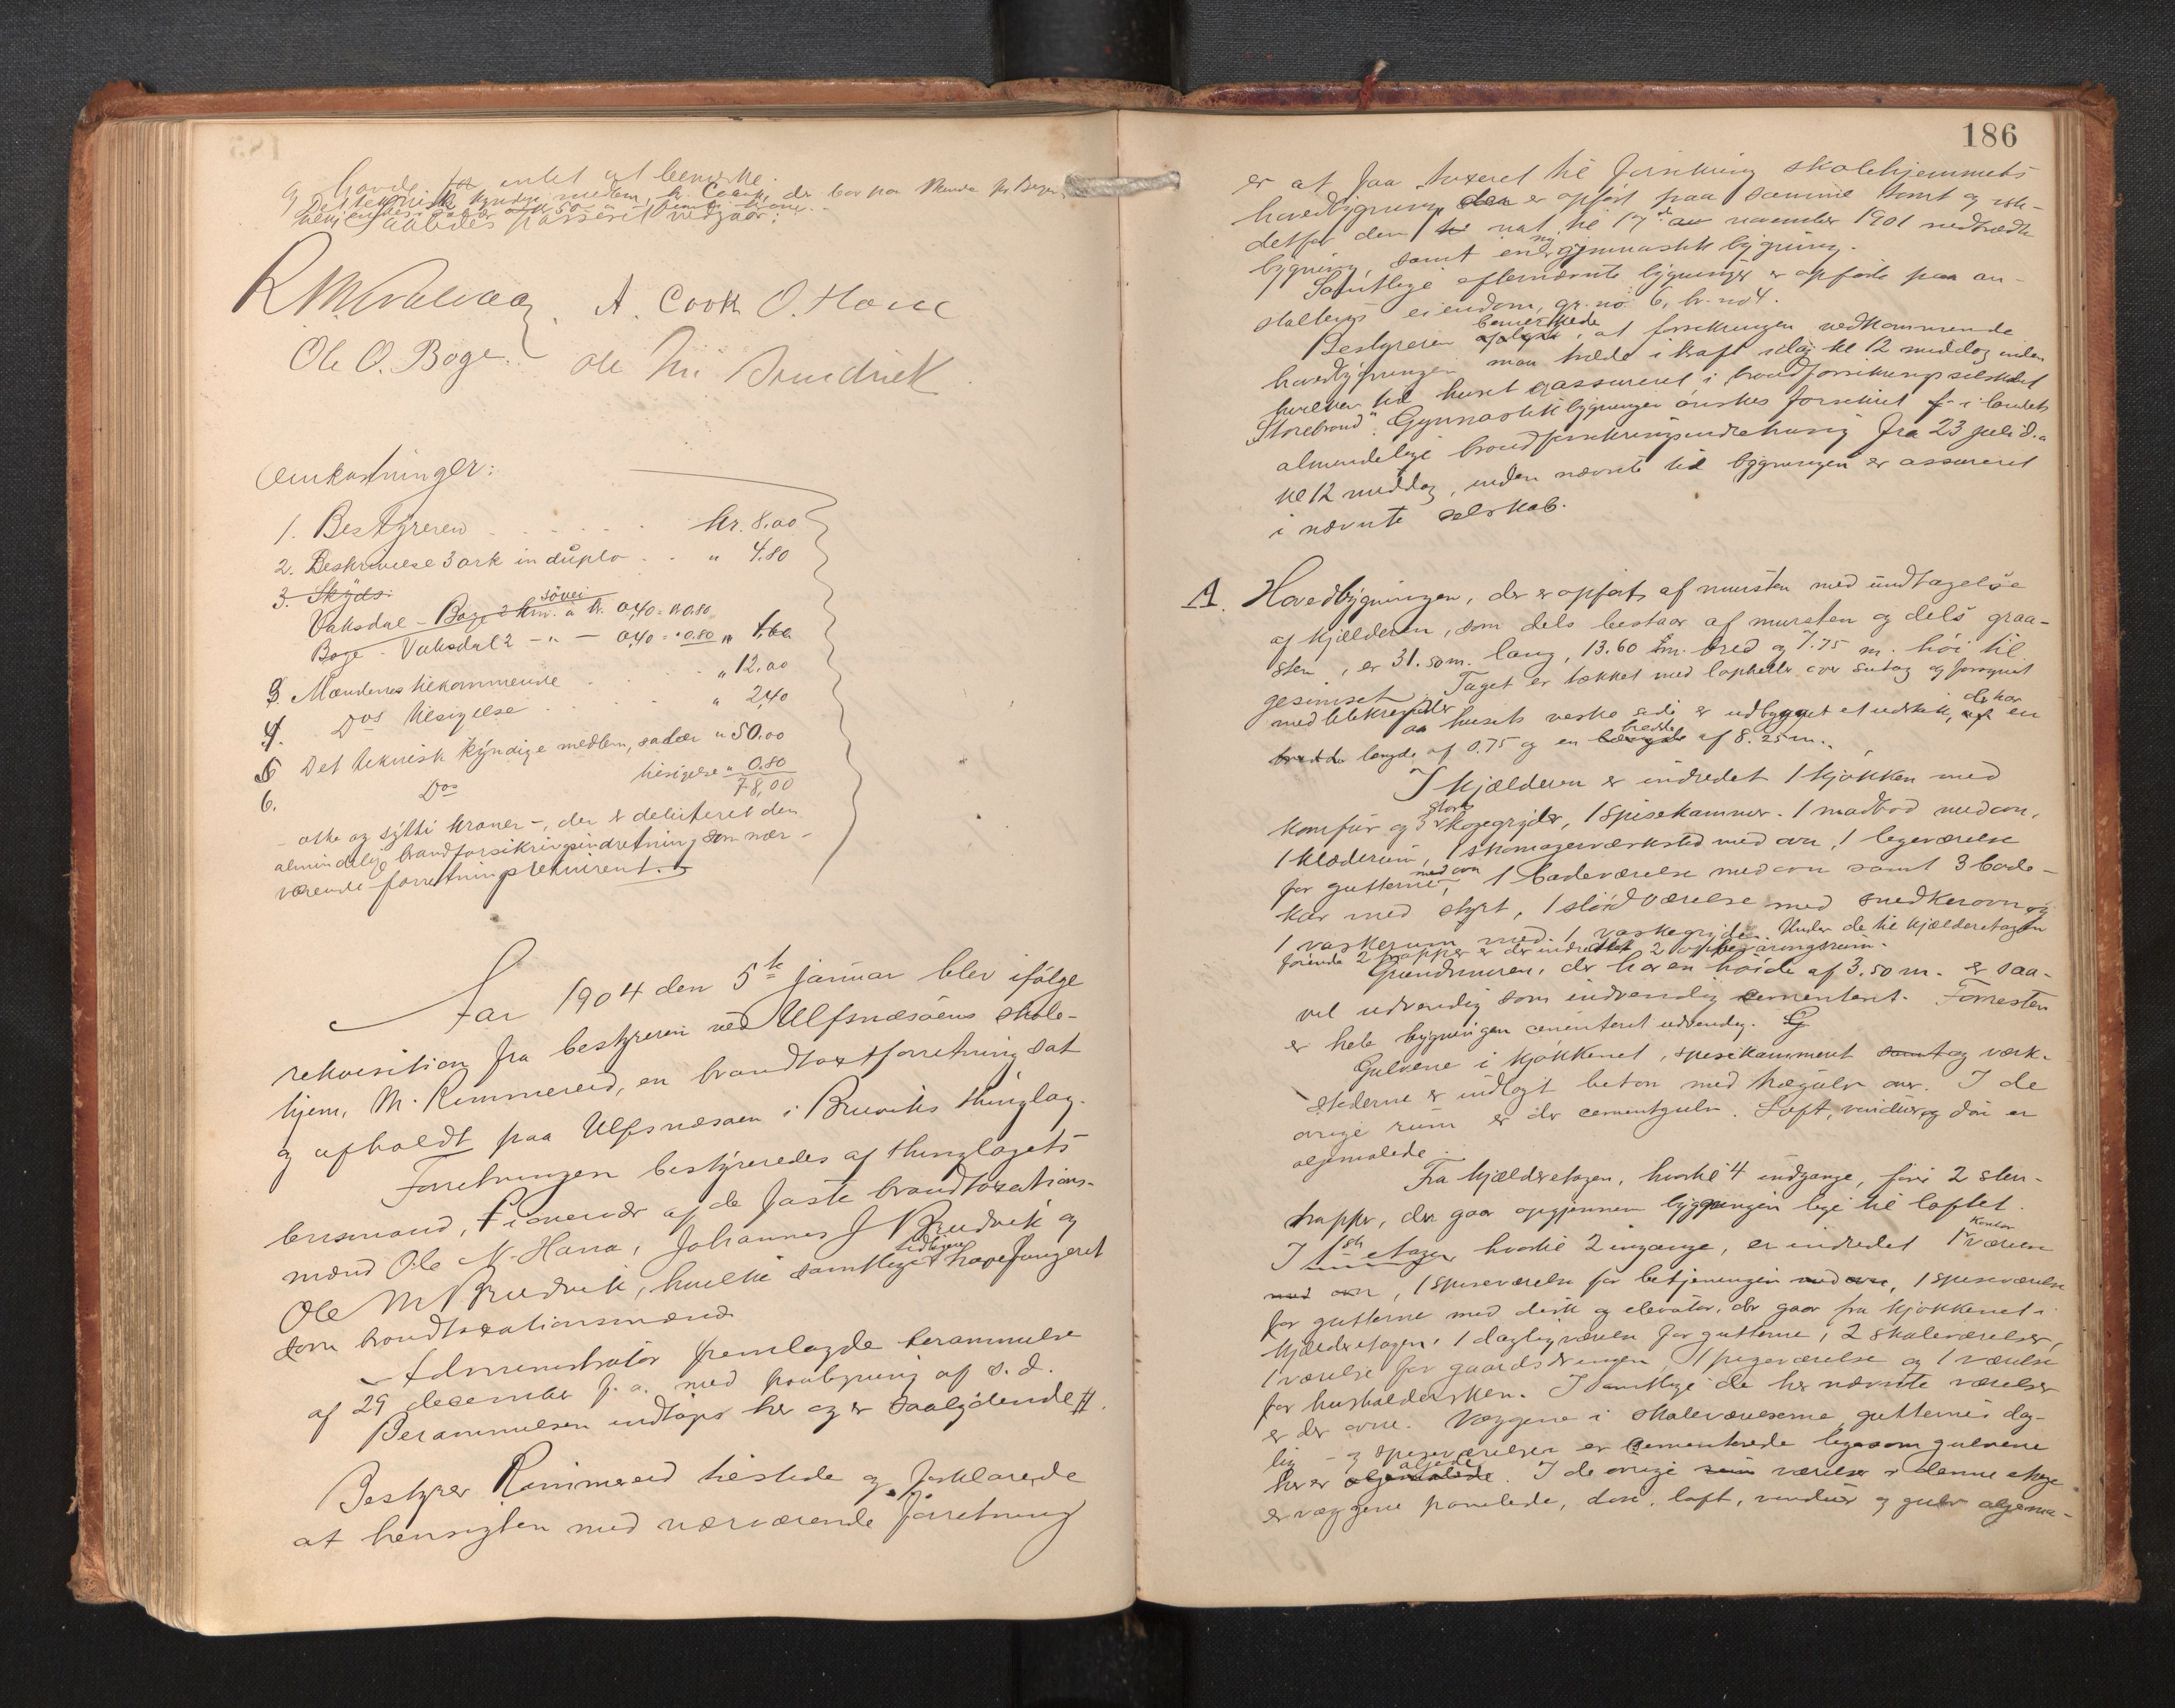 og havde intet at bemerke.
Det teknisk kyndige medlem, hr. Cook, der bor paa
Saaledes passeret vedgaar:
A. Cook O. Hane
Ole O. Boge. Ole
Omkostninger:
1. Bestyreren kr. 8.00
2. Beskrivelse 3 ark in duplo " 4.80
3. Skyds:
Vaksdal - Boge 2 km. søvei a kr. 0,40 = kr 0.80
Boge - Vaksdal 2 - " - 0,40 = " 0.80 " 1,60
3. Mændenes tilkommende " 12.00
4. Dos tilsigelse " 2,40
5 Det teknisk kyndige medlem, salær " 50.00
6. Dos tilsigelse " 0.80
78,00
- otte og sytti kroner -, der er debiteret den
almindelige brandforsikringsindretning som nær-
værende forretnings rekvirent.
Aar 1904 den 5te januar blev ifølge
rekvisition fra bestyreren ved Ulfsnæsøens skole-
hjem, M. Rimmereid, en brandtaxtforretning sat
og afholdt paa Ulfsnæsøen i Bruviks thinglag.
Forretningen bestyreredes af thinglagets
lensmand, i overvær af de faste brandtaxations-
mænd Ole N. Hana, Johannes J Bruvik og
Ole M Bruvik, hvilke samtlige tidligere have fungeret
som brandtaxationsmænd.
Administrator fremlagde berammelse
af 29 december f. a. med paategning af s. d.
Berammelsen indtages her og er saalydende #.
Bestyrer Rimmereid tilstede og forklarede
at hensigten med nærværende forretning
186
er at faa taxeret til forsikring skolehjemmets
hovedbygning, der er opført paa samme tomt og iste-
detfor den nat til 17de november 1901 nedbrændte
bygning, samt en ny gymnastikbygning.
Samtlige efternævnte bygninger er opførte paa an-
staltens eiendom, gr. no 6, br. no 4.
Bestyreren bemerkede, at forsikringen vedkommende
hovedbygningen maa træde i kraft idag kl 12 middag inden
hvilken tid huset er assureret i brandforsikringsselskabet
"Storebrand". Gymnastikbygningen ønskes forsikret i landets
almindelige brandforsikringsindretning fra 23 juli d. a
kl 12 middag, inden nævnte tid bygningen er assureret
i nævnte selskab.
A. Hovedbygningen, der er opført af mursten med undtagelse
af kjælderen, som dels bestaar af mursten og dels graa-
sten, er 31.50 m. lang, 13.60 m. bred og 7.75 m. høi til
gesimset. Taget er tækket med lapheller over sutag og forsynet
med blikrender. Paa husets vestre side er udbygget et udstik, der har en
længde af 0.75 og en bredde af 8.25 m.
I kjælderen er indredet 1 kjøkken med
komfur og 3 store kogegryder, 1 spisekammer. 1 madbod med ovn,
1 klæderum, 1 skomagerværksted med ovn, 1 legeværelse
for gutterne med ovn, 1 badeværelse med ovn samt 3 bade-
kar med styrt, 1 sløidværelse med snedkerovn og
1 vaskerum med 1 vaskegryde. Under de til kjælderetagen
førende 2 trapper er der indredet 2 opbevaringsrum.
Grundmuren, der har en høide af 3.50 m. er saa-
vel udvendig som indvendig cementeret. Forresten
er hele bygningen cementeret udvendig.
Gulvene i kjøkkenet, spisekammeret samt og værk-
stederne er indlagt beton med trægulv over. I de
øvrige rum er der cementgulv. Loft, vinduer og døre er
oljemalede.
Fra kjælderetagen, hvortil 4 indgange, fører 2 sten-
trapper, der gaar opgjennem bygningen lige til loftet.
I 1ste etage, hvortil 2 ingange, er indredet 1 kontor værelse
med ovn, 1 spiseværelse for betjeningen med ovn, 1 spiseværelse
for gutterne med disk og elevator, der gaar fra kjøkkenet i
kjælderetagen, 1 dagligværelse for gutterne, 2 skoleværelser,
1 værelse for gaardsdrengen, 1 pigeværelse og 1 værelse
for husholdersken. I samtlige de her nævnte værelser
er der ovne. Væggene i skoleværelserne, gutternes dag-
lig - og spiseværelser er cementerede ligesom gulvene
her er oljede. I de øvrige rum værelser i denne etage
er væggene panelede, døre, loft, vinduer og gulv oljema-